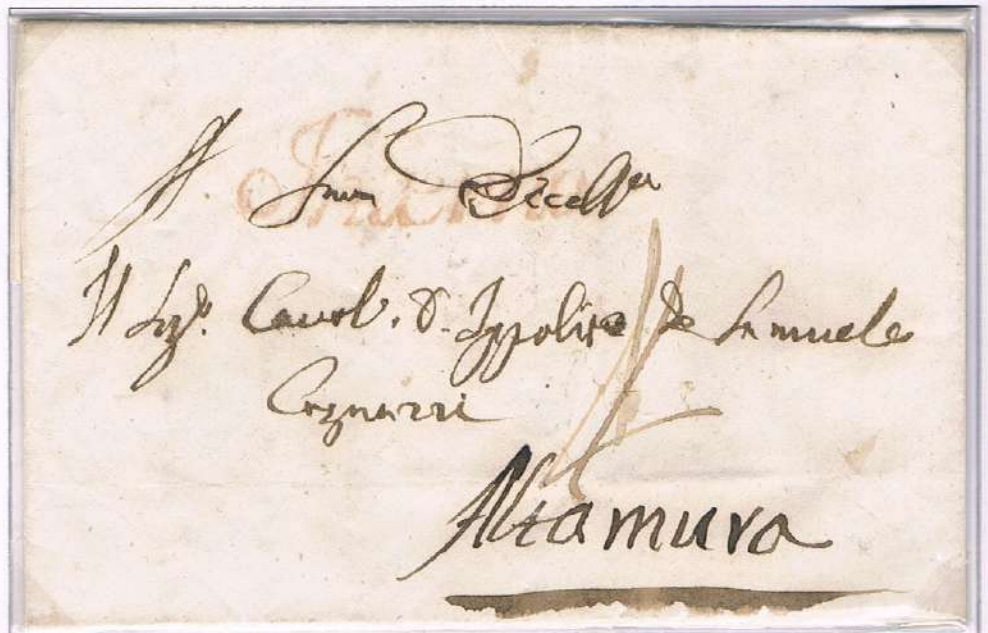 A Sua Eccellza
Il Sigr. Caval. D. Ippolito de Samuele
Cagnazzi
Altamura